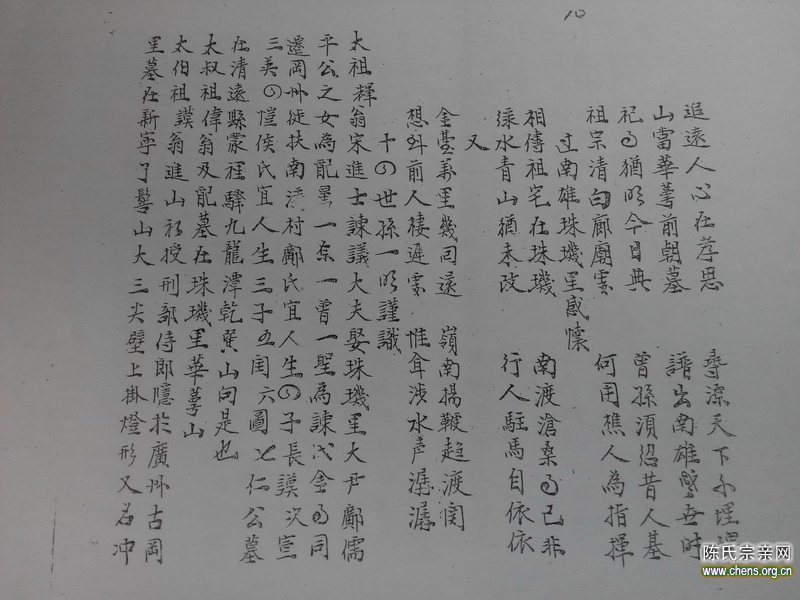 10
追遠人心在孝思　尋深天下
山當華萼前朝墓　譜出南雄世时
祀猶明今日典　曾孫須認昔人基
祖宗清白廊廟　何用樵人為指揮
过南雄珠璣里感懷
相傳祖宅在珠璣　南渡滄桑已非
綠水青山猶未改　行人駐馬自依依
又
金里幾回遠　嶺南揚鞭趂渡関
想前人棲遲　惟涉水声潺潺
十四世孫一明謹識
太祖輝翁宋進士諫議大夫娶珠璣里大尹鄺儒
平公之女為配一宗一曾一聖為諫金同
遷岡州徙扶南村鄺氏宜人生四子長謨次宣
三美四愷侯氏宜人生三子五闰六圖七仁公墓
在清遠縣裡驛九龍潭乾巽山向是也
太叔祖偉翁及配墓在珠璣里華萼山
太伯祖謨翁進山授刑部侍郎隱於廣州古岡
里墓在新寧了髻山大三尖壁上掛燈形又名冲
陈氏宗亲网
www.chens.org.cn